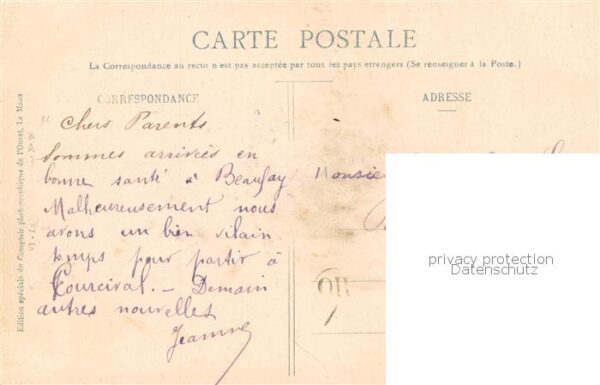 CARTE POSTALE
La Correspondance au recto n'est pas acceptée par tous les pays étrangers (Se renseigner à la Poste.)
CORRESPONDANCE
ADRESSE
Edition spéciale du Comptoir photographique de l'Ouest, Le Mans
Chers Parents
Sommes arrivées en
bonne santé à Beaufay
Malheureusement nous
avons un bien vilain
temps pour partir à
Courcival. — Demain
autres nouvelles
Jeanne
Monsie
privacy protection
Datenschutz